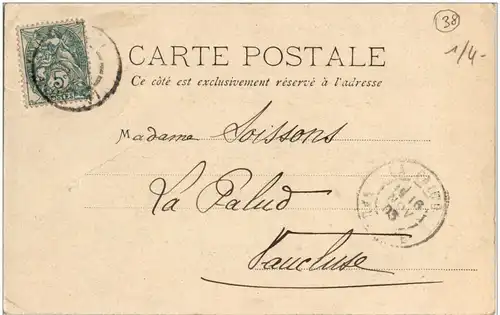 38
1/4-
5
CARTE POSTALE
Ce côté est exclusivement réservé à l'adresse
Madame Soissons
La Palud
Vaucluse
16
NOV
03